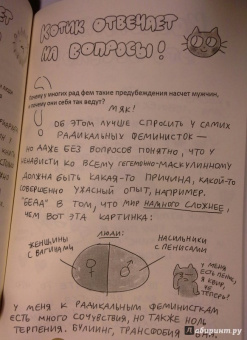 КОТИК ОТВЕЧАЕТ
НА ВОПРОСЫ!
Почему у многих рад фем такие предубеждения насчет мужчин,
и почему они себя так ведут?
МЯК!
ОБ ЭТОМ ЛУЧШЕ СПРОСИТЬ У САМИХ
РАДИКАЛЬНЫХ ФЕМИНИСТОК —
НО ДАЖЕ БЕЗ ВОПРОСОВ ПОНЯТНО, ЧТО У
НЕНАВИСТИ КО ВСЕМУ ГЕГЕМОННО-МАСКУЛИННОМУ
ДОЛЖНА БЫТЬ КАКАЯ-ТО ПРИЧИНА, КАКОЙ-ТО
СОВЕРШЕННО УЖАСНЫЙ ОПЫТ, НАПРИМЕР.
В ТОМ, ЧТО МИР НАМНОГО СЛОЖНЕЕ,
ЧЕМ ВОТ ЭТА КАРТИНКА:
ЛЮДИ:
ЖЕНЩИНЫ
С ВАГИНАМИ
НАСИЛЬНИКИ
С ПЕНИСАМИ
У МЕНЯ
ЕСТЬ ПЕНИС,
ТЕПЕРЬ!
У МЕНЯ К РАДИКАЛЬНЫМ ФЕМИНИСТКАМ
ЕСТЬ МНОГО СОЧУВСТВИЯ, НО ТАКЖЕ НОЛЬ
ТЕРПЕНИЯ. БУЛЛИНГ, ТРАНСФОБИЯ